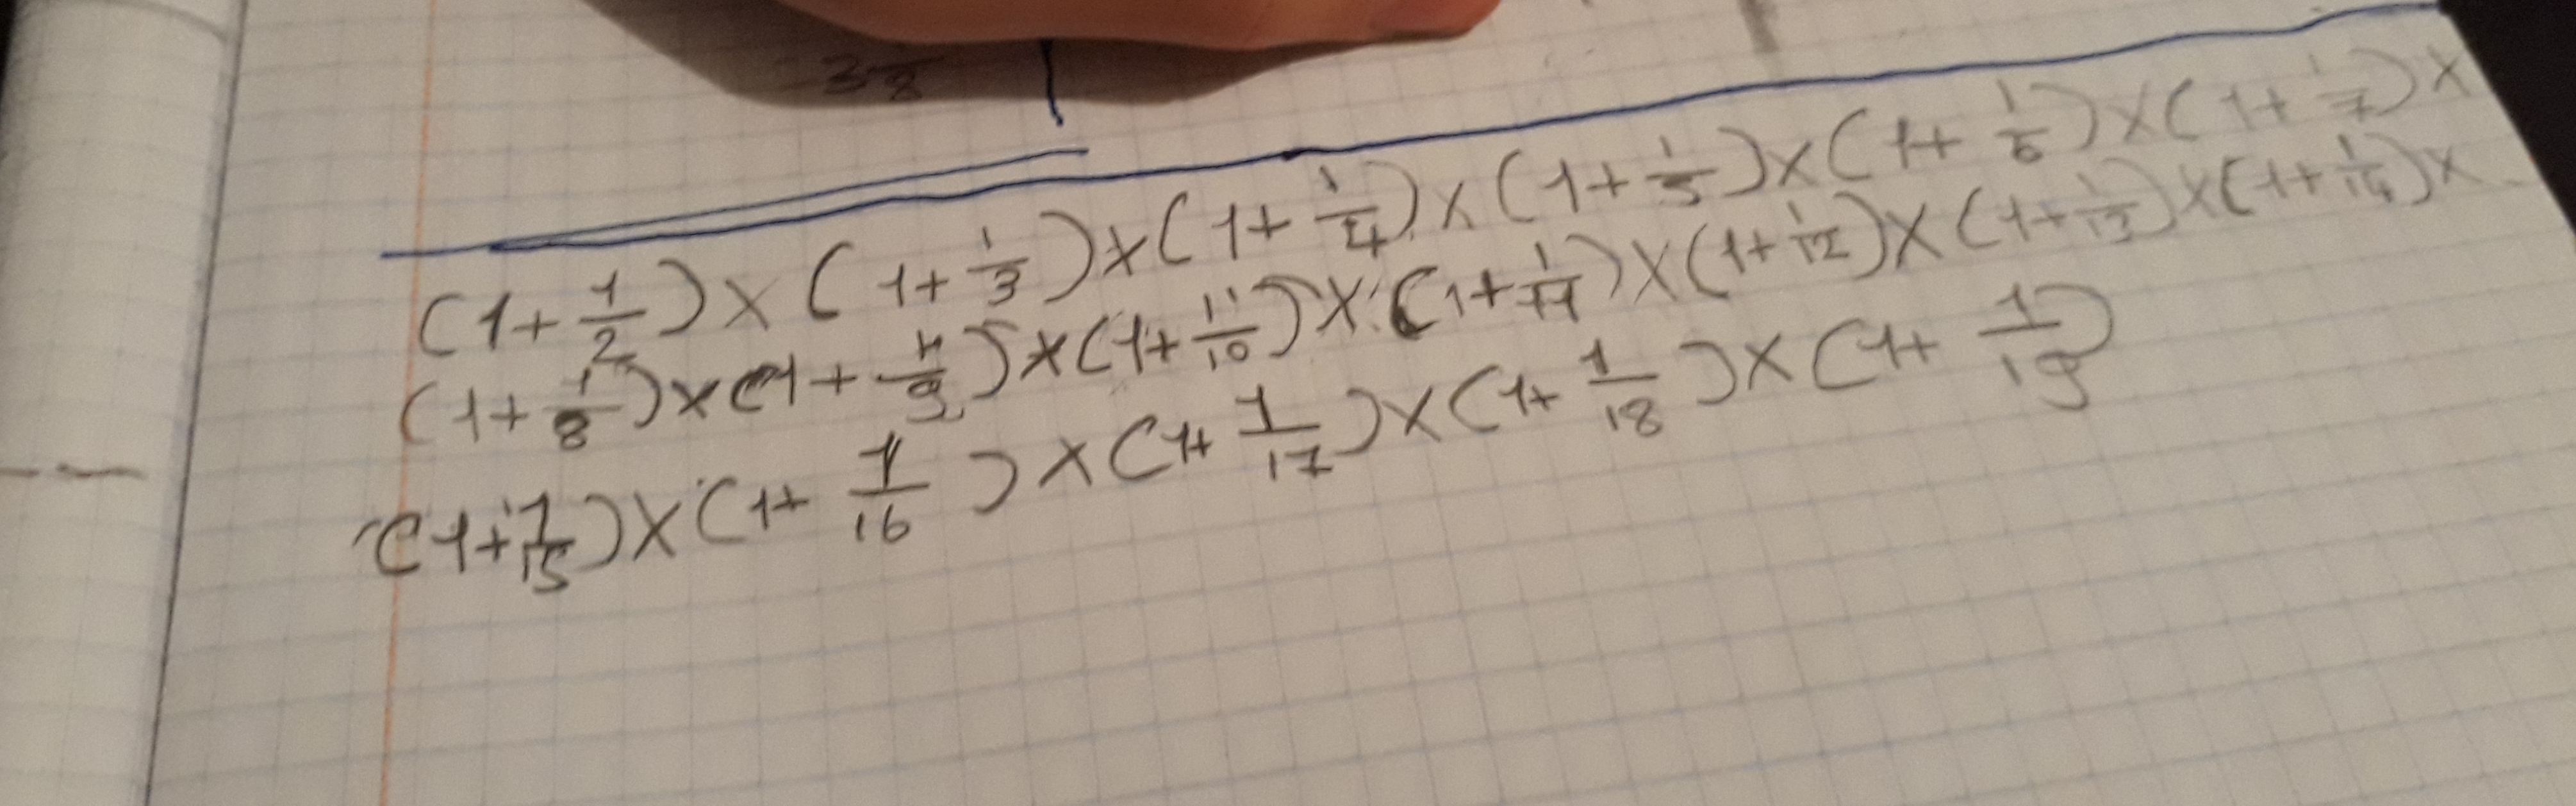 3/8
(1+1/2)×(1+1/3)×(1+1/4)×(1+1/5)×(1+1/6)×(1+1/7)×
(1+1/8)×(1+1/9)×(1+1/10)×(1+1/11)×(1+1/12)×(1+1/13)×(1+1/14)×
(1+1/15)×(1+1/16)×(1+1/17)×(1+1/18)×(1+1/19)